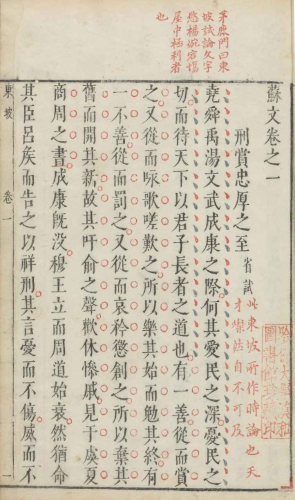 茅鹿門曰東
坡試論文字
悠揚宛宕於
屋中極利者
也
蘇文卷之一
刑賞忠厚之至 省試
此東坡所作時論也天
才燦然自不可及
堯舜禹湯文武成康之際何其愛民之深憂民之
切而待天下以君子長者之道也有一善從而賞
之又從而咏歌嗟歎之所以樂其始而勉其終有
一不善從而罰之又從而哀矜懲創之所以棄其
舊而開其新故其吁俞之聲歡休慘戚見于虞夏
商周之書成康既沒穆王立而周道始衰然猶命
其臣呂矦而告之以祥刑其言憂而不傷威而不
東坡 卷一 一